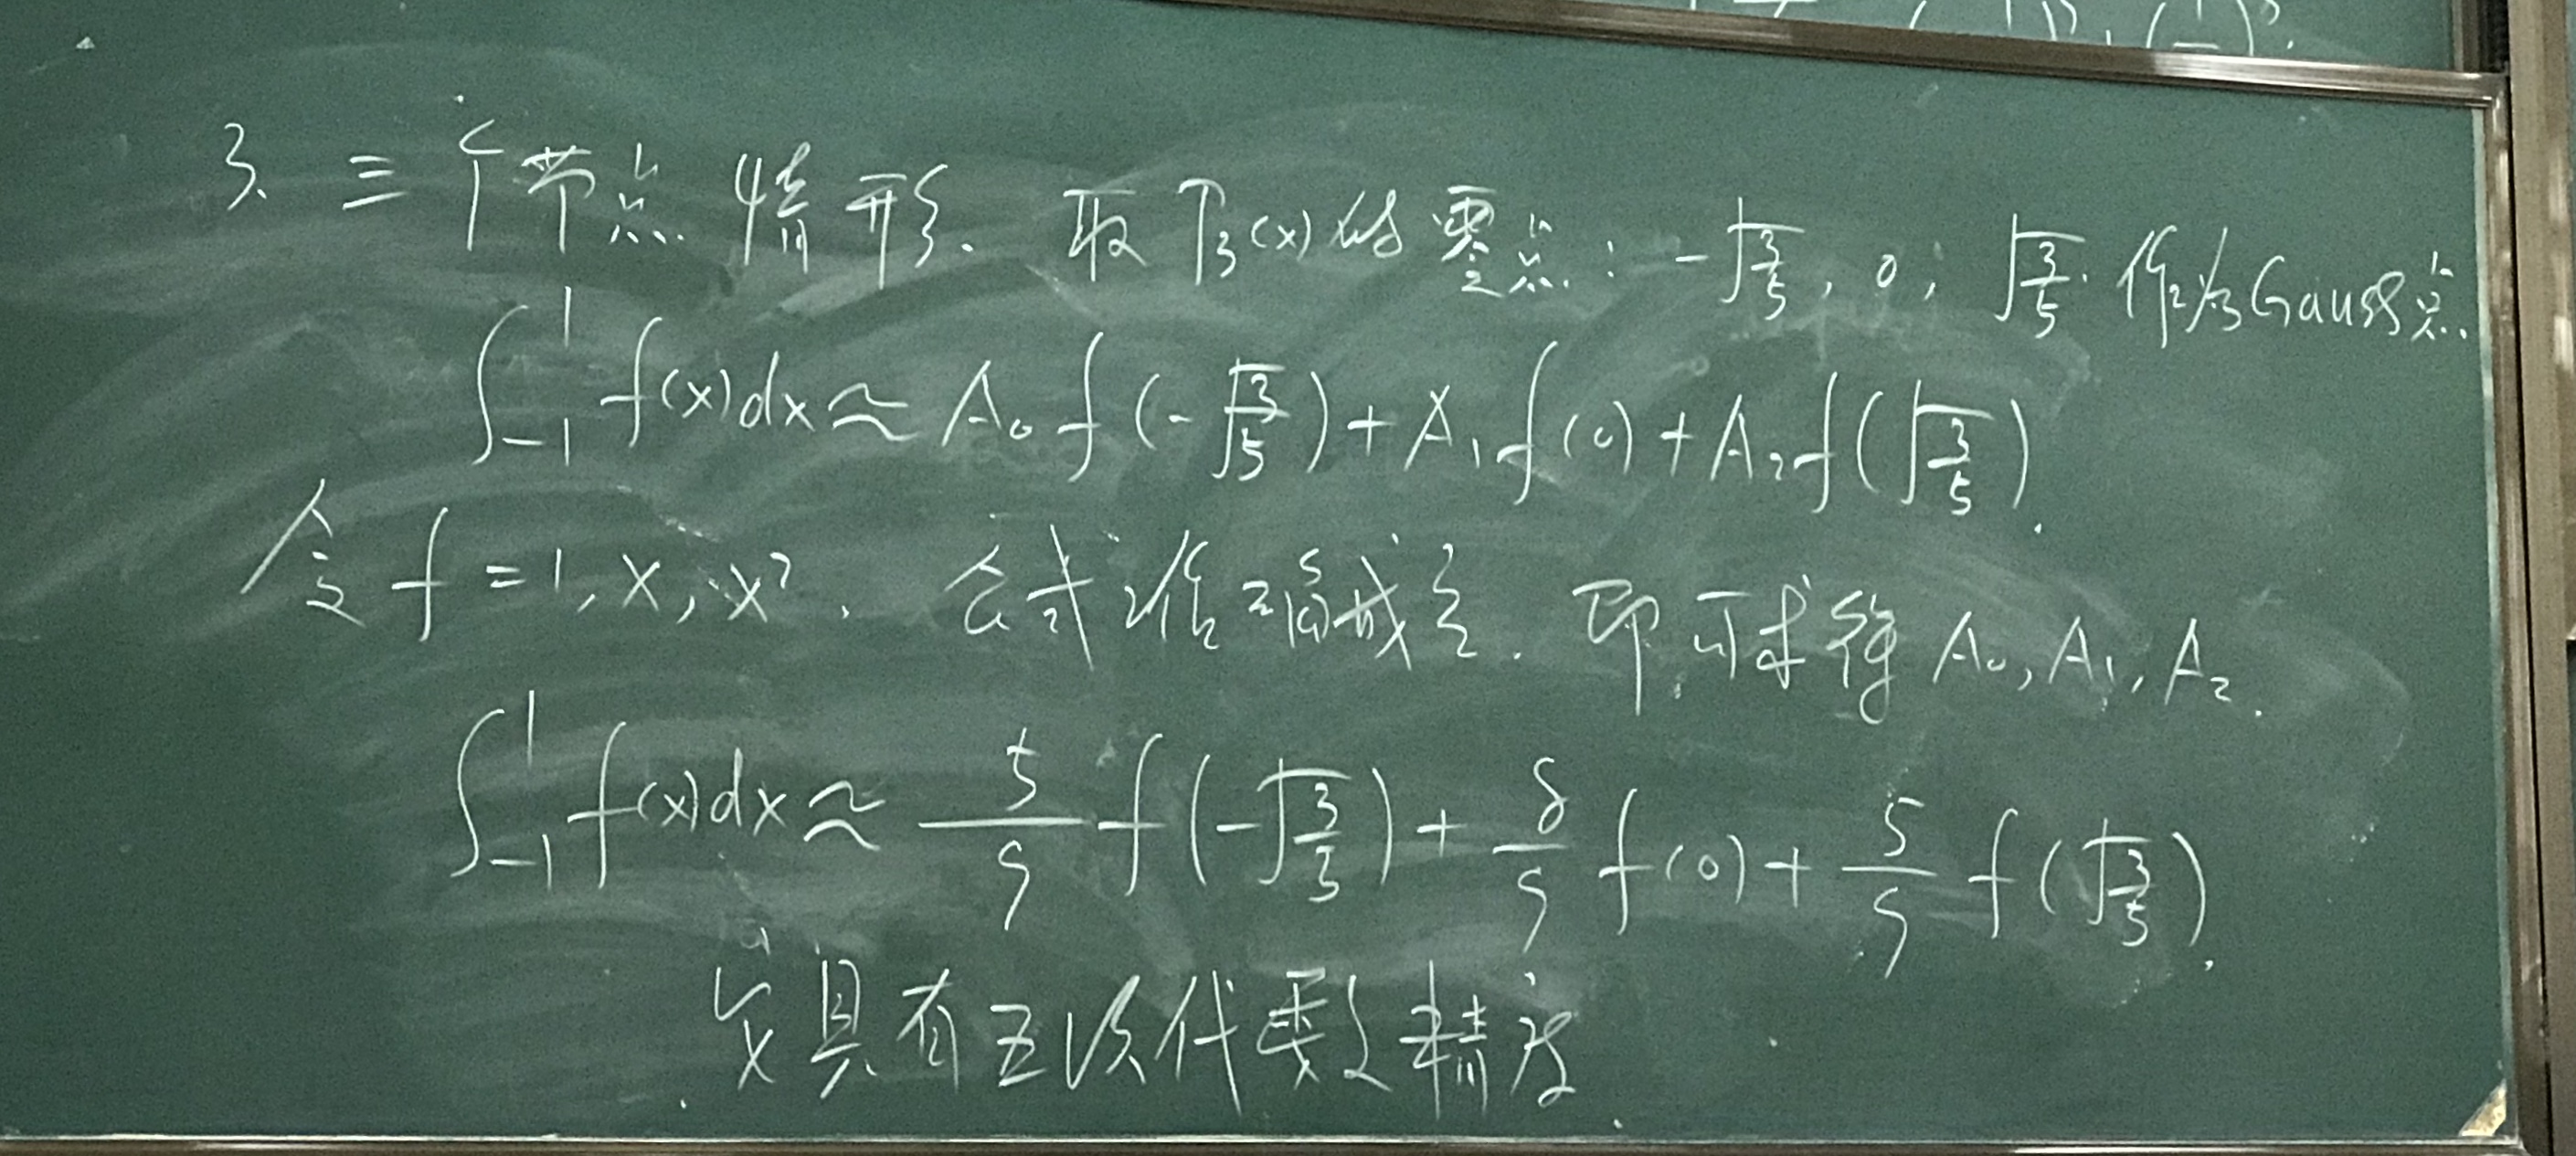 3. 三个节点情形. 取 P₃(x) 的零点: -√(3/5), 0, √(3/5) 作为Gauss点
∫₋₁¹ f(x)dx ≈ A₀f(-√(3/5)) + A₁f(0) + A₂f(√(3/5)).
令 f = 1, x, x². 公式准确成立. 即可求得 A₀, A₁, A₂.
∫₋₁¹ f(x)dx ≈ 5/9 f(-√(3/5)) + 8/9 f(0) + 5/9 f(√(3/5)).
具有五次代数精度.